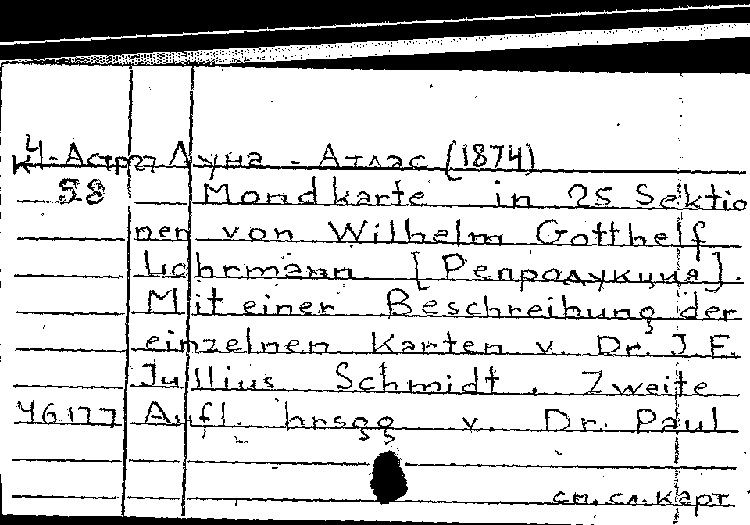 К4-Астр Луна - Атлас (1874)
58 Mondkarte in 25 Sektio
nen von Wilhelm Gotthelf
Lohrmann [Репродукция].
Mit einer Beschreibung der
einzelnen Karten v. Dr. J. F.
Jullius Schmidt. Zweite
46177 Aufl. hrsgg v. Dr. Paul
см. сл. карт